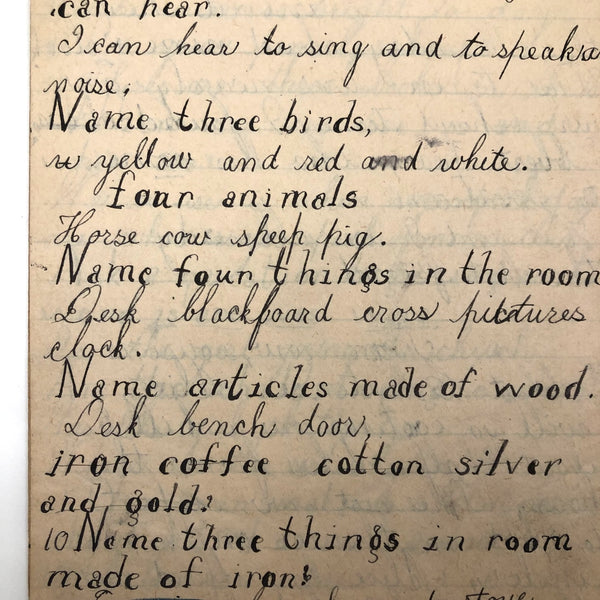 can hear.
I can hear to sing and to speak a
noise.
Name three birds,
yellow and red and white.
four animals
Horse cow sheep pig.
Name four things in the room
Desk blackboard cross pictures
clock.
Name articles made of wood.
Desk bench door,
iron coffee cotton silver
and gold?
10 Name three things in room
made of iron?
stove